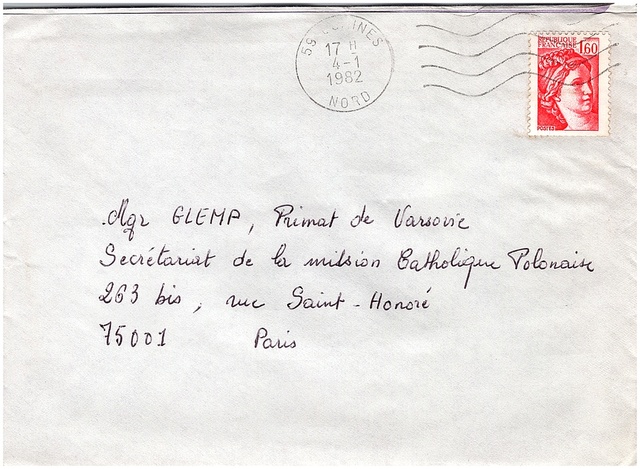 59 COMINES
17 H
4-1
1982
NORD
REPUBLIQUE
FRANÇAISE
1,60
POSTES
Mgr GLEMP, Primat de Varsovie
Secrétariat de la mission Catholique Polonaise
263 bis, rue Saint-Honoré
75001 Paris